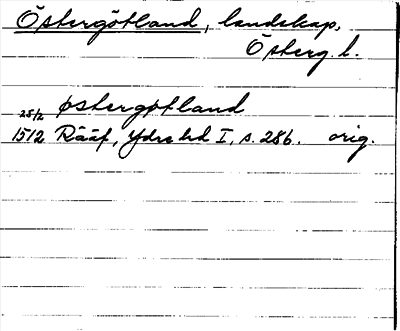 Östergötland, landskap,
Österg. l.
25/2 østergøtland
1512 Rääf, Ydre hd I, s. 286. orig.